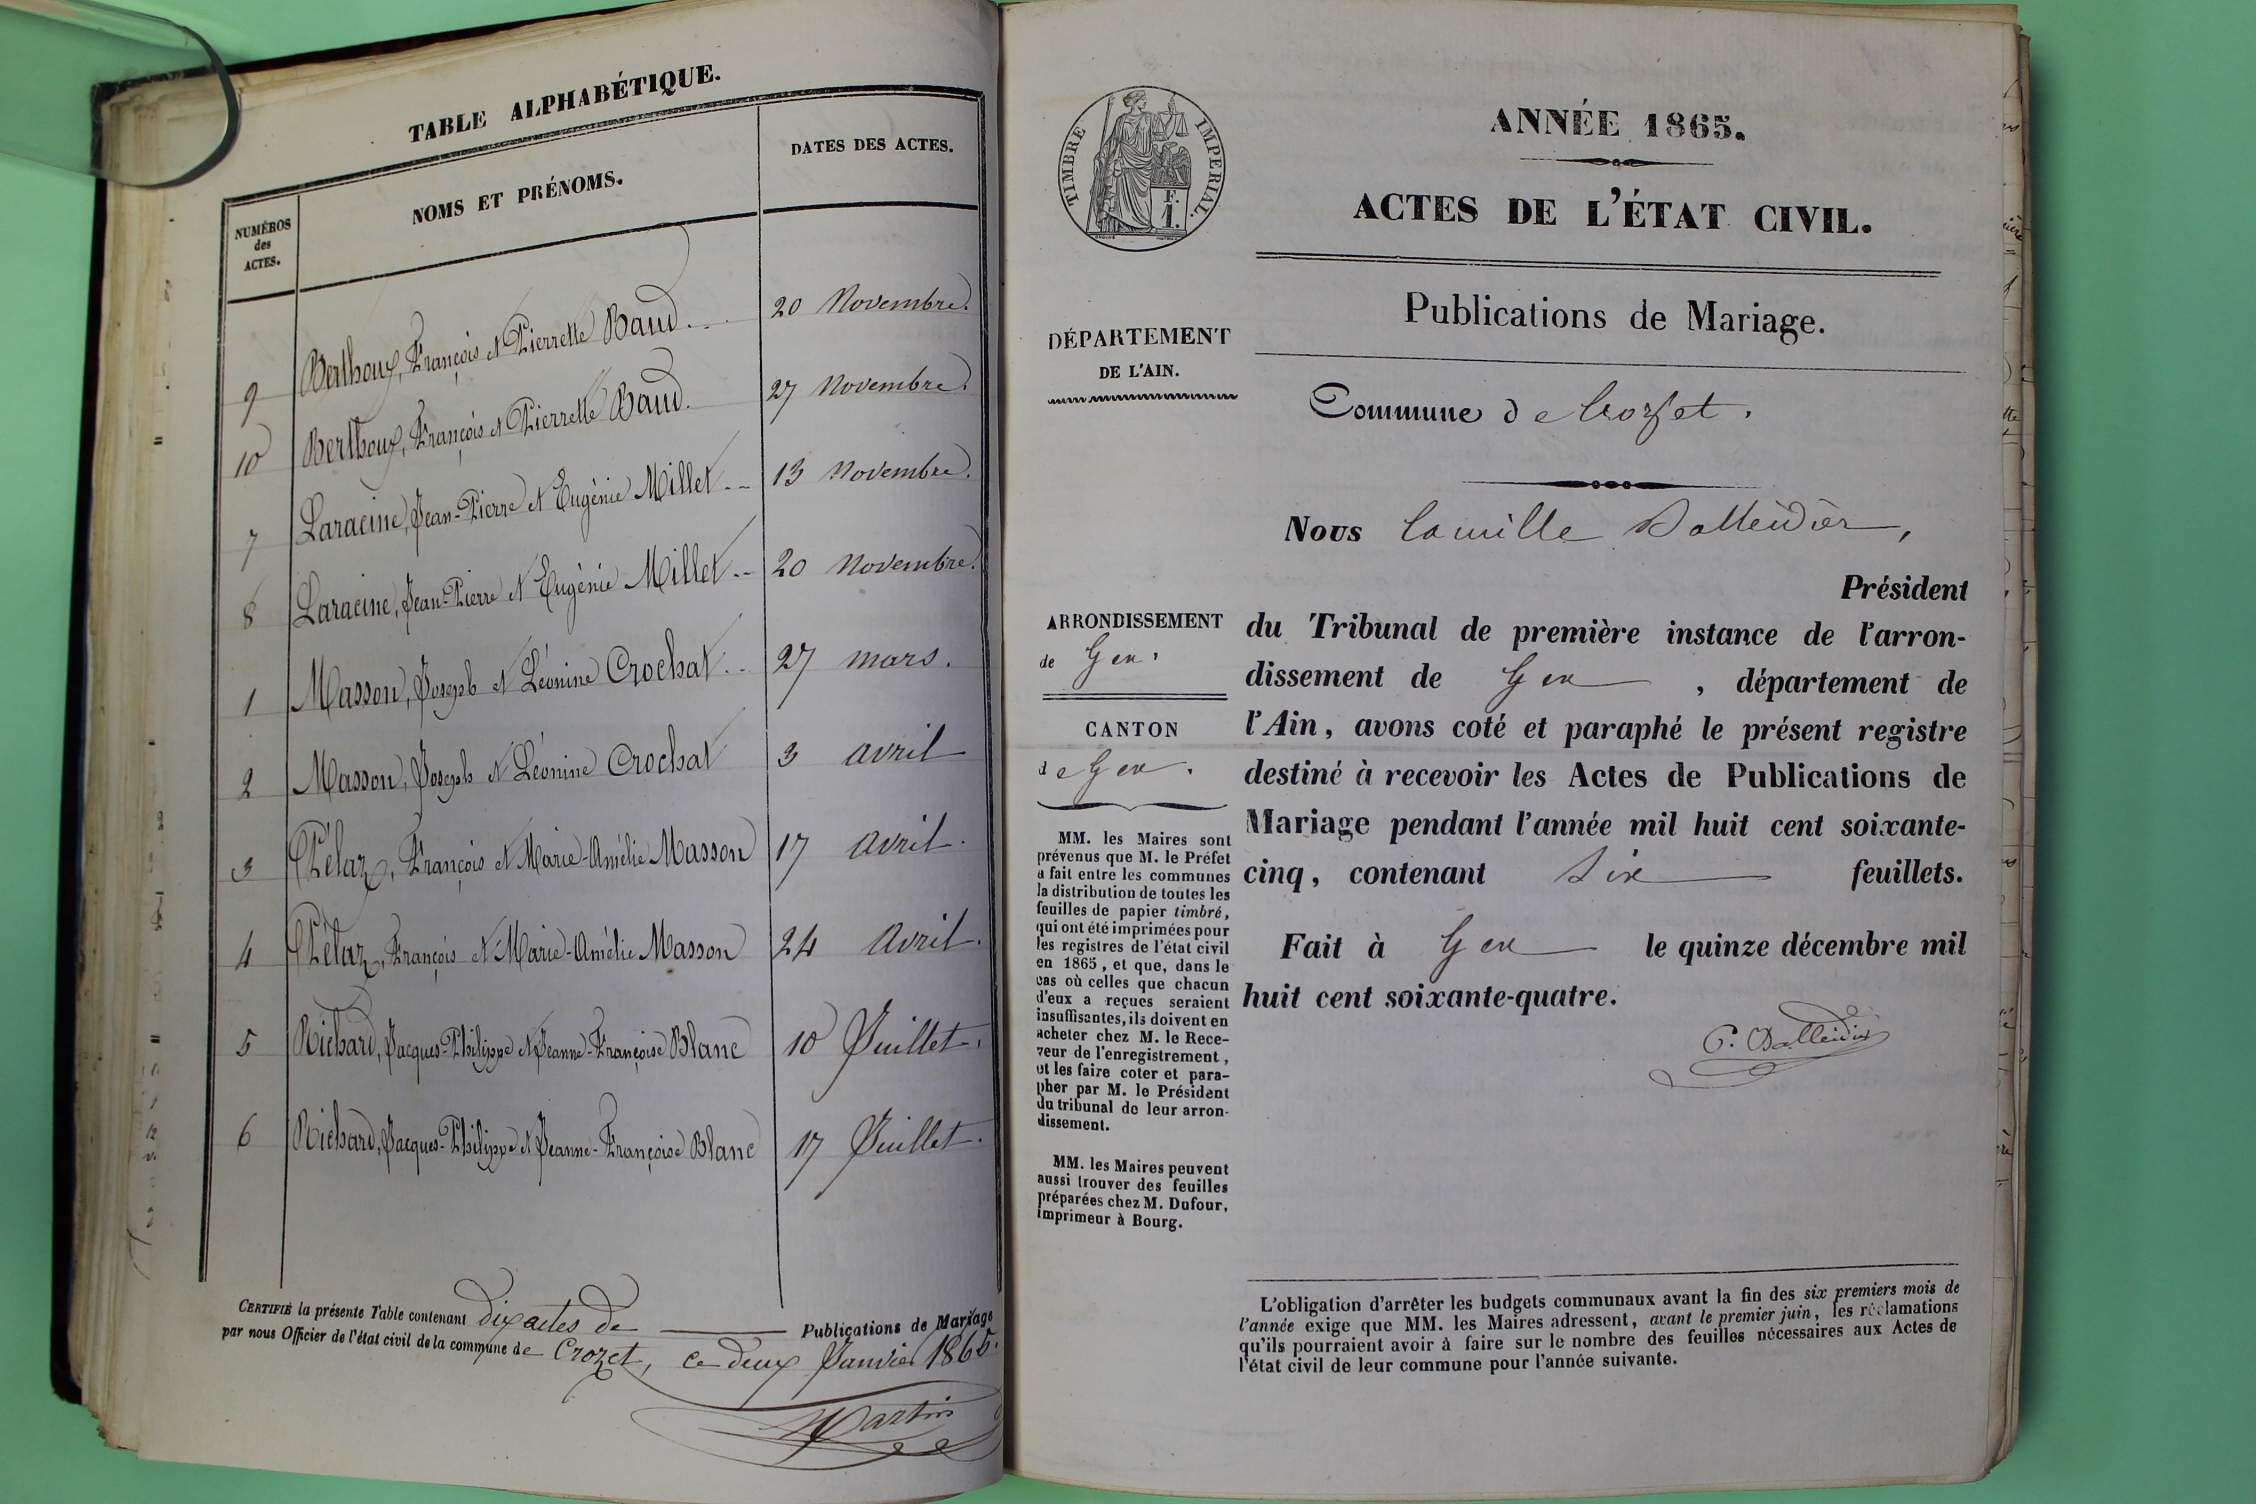 TABLE ALPHABÉTIQUE.
NUMÉROS
des
ACTES.
NOMS ET PRÉNOMS.
DATES DES ACTES.
9 Berthoux, François et Pierrette Baud... 20 Novembre.
10 Berthoux, François et Pierrette Baud. 27 Novembre.
7 Laracine, Jean-Pierre et Eugénie Millet -- 13 Novembre.
8 Laracine, Jean-Pierre et Eugénie Millet -- 20 Novembre.
1 Masson, Joseph et Léonine Crochat... 27 mars.
2 Masson, Joseph et Léonine Crochat 3 avril
3 Pélaz, François et Marie-Amélie Masson 17 avril.
4 Pélaz, François et Marie-Amélie Masson 24 Avril.
5 Richard, Jacques-Philippe et Jeanne-Françoise Blanc 10 Juillet.
6 Richard, Jacques-Philippe et Jeanne-Françoise Blanc 17 Juillet.
CERTIFIÉ la présente Table contenant dix actes de Publications de Mariage
par nous Officier de l'état civil de la commune de Crozet, ce deux Janvier 1865.
Martin
TIMBRE IMPERIAL.
F.
1.
ANNÉE 1865.
ACTES DE L'ÉTAT CIVIL.
Publications de Mariage.
DÉPARTEMENT
DE L'AIN.
Commune de Crozet.
Nous Camille Balleidier,
Président
du Tribunal de première instance de l'arron-
dissement de Gex, département de
l'Ain, avons coté et paraphé le présent registre
destiné à recevoir les Actes de Publications de
Mariage pendant l'année mil huit cent soixante-
cinq, contenant Six feuillets.
Fait à Gex le quinze décembre mil
huit cent soixante-quatre.
C. Balleidier
ARRONDISSEMENT
de Gex.
CANTON
de Gex.
MM. les Maires sont
prévenus que M. le Préfet
a fait entre les communes
la distribution de toutes les
feuilles de papier timbré,
qui ont été imprimées pour
les registres de l'état civil
en 1865, et que, dans le
cas où celles que chacun
d'eux a reçues seraient
insuffisantes, ils doivent en
acheter chez M. le Rece-
veur de l'enregistrement,
et les faire coter et para-
pher par M. le Président
du tribunal de leur arron-
dissement.
MM. les Maires peuvent
aussi trouver des feuilles
préparées chez M. Dufour,
imprimeur à Bourg.
L'obligation d'arrêter les budgets communaux avant la fin des six premiers mois de
l'année exige que MM. les Maires adressent, avant le premier juin, les réclamations
qu'ils pourraient avoir à faire sur le nombre des feuilles nécessaires aux Actes de
l'état civil de leur commune pour l'année suivante.